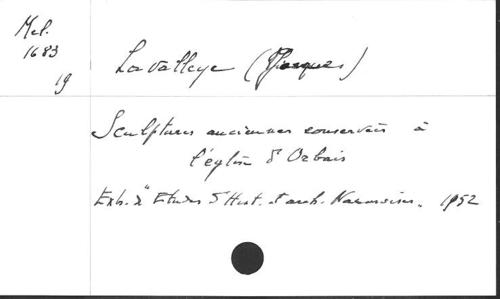 Mel.
1683
19
Lavalleye (Jacques)
Sculptures anciennes conservées à
l'église d'Orbais
Extr. d'"Etudes d'Hist. et d'arch. Namuroises. 1952